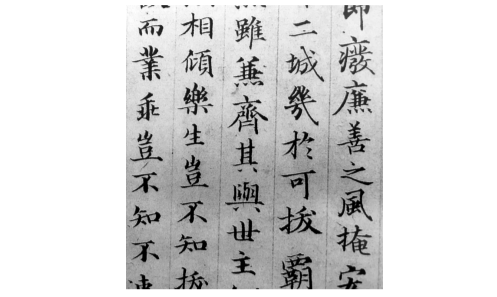 節癈廉善之風掩宏
二城幾於可拔霸
燕雖兼齊其與世主
相傾樂生豈不知拔
而業乖豈不知不速